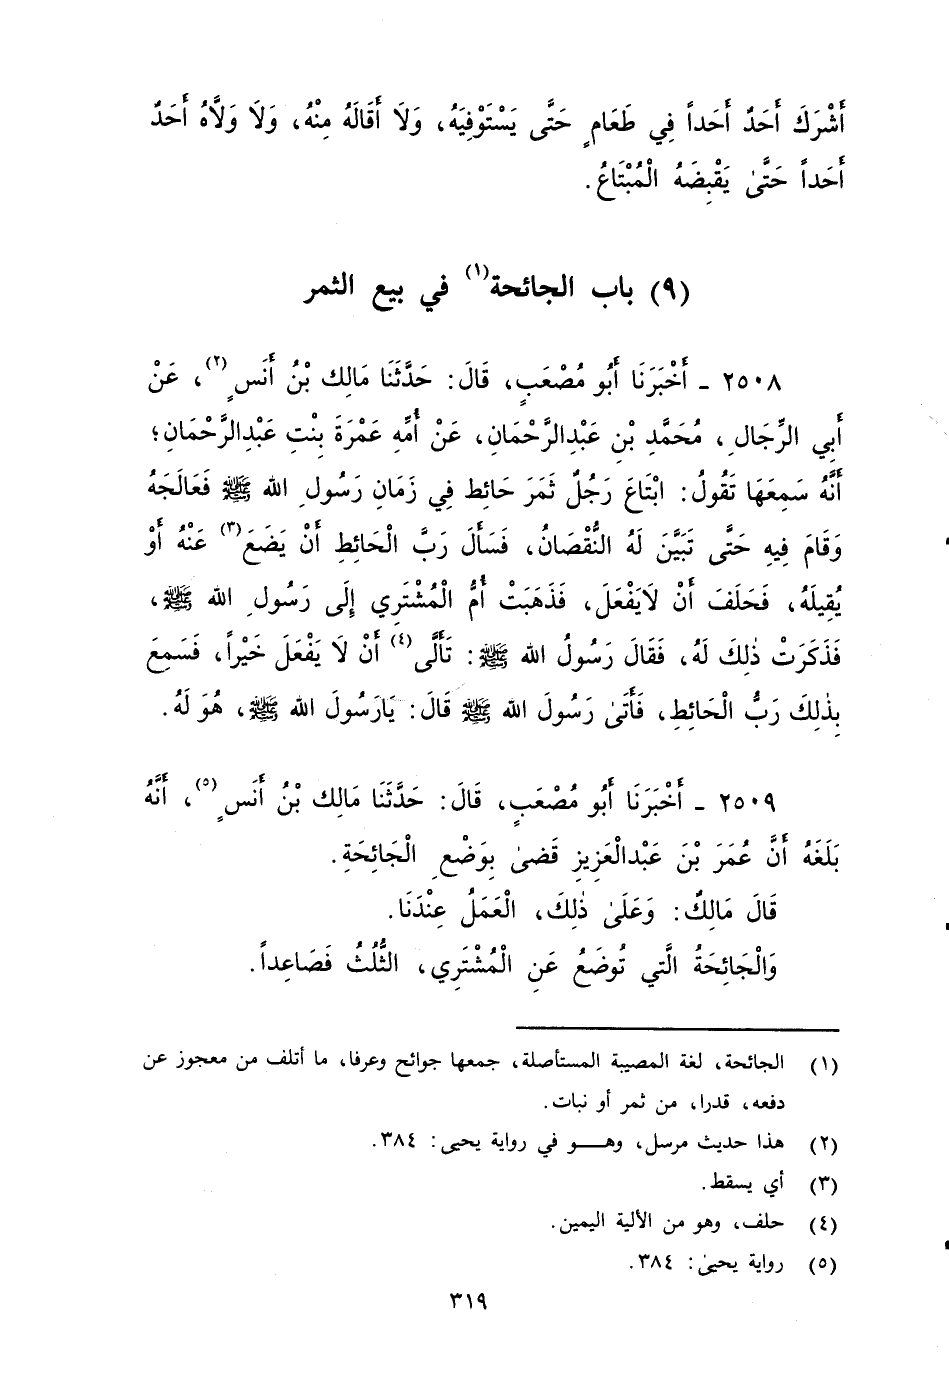 أَشْرَكَ أَحَدٌ أَحَداً فِي طَعَامٍ حَتَّى يَسْتَوْفِيَهُ، وَلَا أَقَالَهُ مِنْهُ، وَلَا وَلَّاهُ أَحَدٌ
أَحَداً حَتَّىٰ يَقْبِضَهُ الْمُبْتَاعُ.
(٩) باب الجائحة(١) في بيع الثمر
٢٥٠٨ ـ أَخْبَرَنَا أَبُو مُصْعَبٍ، قَالَ: حَدَّثَنَا مَالِك بْنُ أَنَسٍ(٢)، عَنْ
أَبِي الرِّجَالِ، مُحَمَّدِ بْنِ عَبْدِالرَّحْمَانِ، عَنْ أُمِّهِ عَمْرَةَ بِنْتِ عَبْدِالرَّحْمَانِ؛
أَنَّهُ سَمِعَهَا تَقُولُ: ابْتَاعَ رَجُلٌ ثَمَرَ حَائِطٍ فِي زَمَانِ رَسُولِ الله ﷺ فَعَالَجَهُ
وَقَامَ فِيهِ حَتَّى تَبَيَّنَ لَهُ النُّقْصَانُ، فَسَأَلَ رَبَّ الْحَائِطِ أَنْ يَضَعَ(٣) عَنْهُ أَوْ
يُقِيلَهُ، فَحَلَفَ أَنْ لَايَفْعَلَ، فَذَهَبَتْ أُمُّ الْمُشْتَرِي إِلَى رَسُولِ الله ﷺ،
فَذَكَرَتْ ذٰلِكَ لَهُ، فَقَالَ رَسُولُ الله ﷺ: تَأَلَّى(٤) أَنْ لَا يَفْعَلَ خَيْراً، فَسَمِعَ
بِذٰلِكَ رَبُّ الْحَائِطِ، فَأَتَىٰ رَسُولَ الله ﷺ قَالَ: يَارَسُولَ الله ﷺ، هُوَ لَهُ.
٢٥٠٩ ـ أَخْبَرَنَا أَبُو مُصْعَبٍ، قَالَ: حَدَّثَنَا مَالِك بْنُ أَنَسٍ(٥)، أَنَّهُ
بَلَغَهُ أَنَّ عُمَرَ بْنَ عَبْدِالْعَزِيزِ قَضىٰ بِوَضْعِ الْجَائِحَةِ.
قَالَ مَالِكٌ: وَعَلَىٰ ذٰلِكَ، الْعَمَلُ عِنْدَنَا.
وَالْجَائِحَةُ الَّتِي تُوضَعُ عَنِ الْمُشْتَرِي، الثُّلُثُ فَصَاعِداً.
(١) الجائحة، لغة المصيبة المستأصلة، جمعها جوائح وعرفا، ما أتلف من معجوز عن
دفعه، قدرا، من ثمر أو نبات.
(٢) هذا حديث مرسل، وهـــو في رواية يحيى: ٣٨٤.
(٣) أي يسقط.
(٤) حلف، وهو من الألية اليمين.
(٥) رواية يحيىٰ: ٣٨٤.
٣١٩